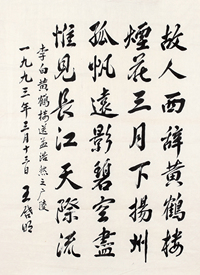 故人西辞黄鹤楼
烟花三月下扬州
孤帆远影碧空尽
惟见长江天际流
李白黄鹤楼送孟浩然之广陵
一九九三年三月十三日 王啓明